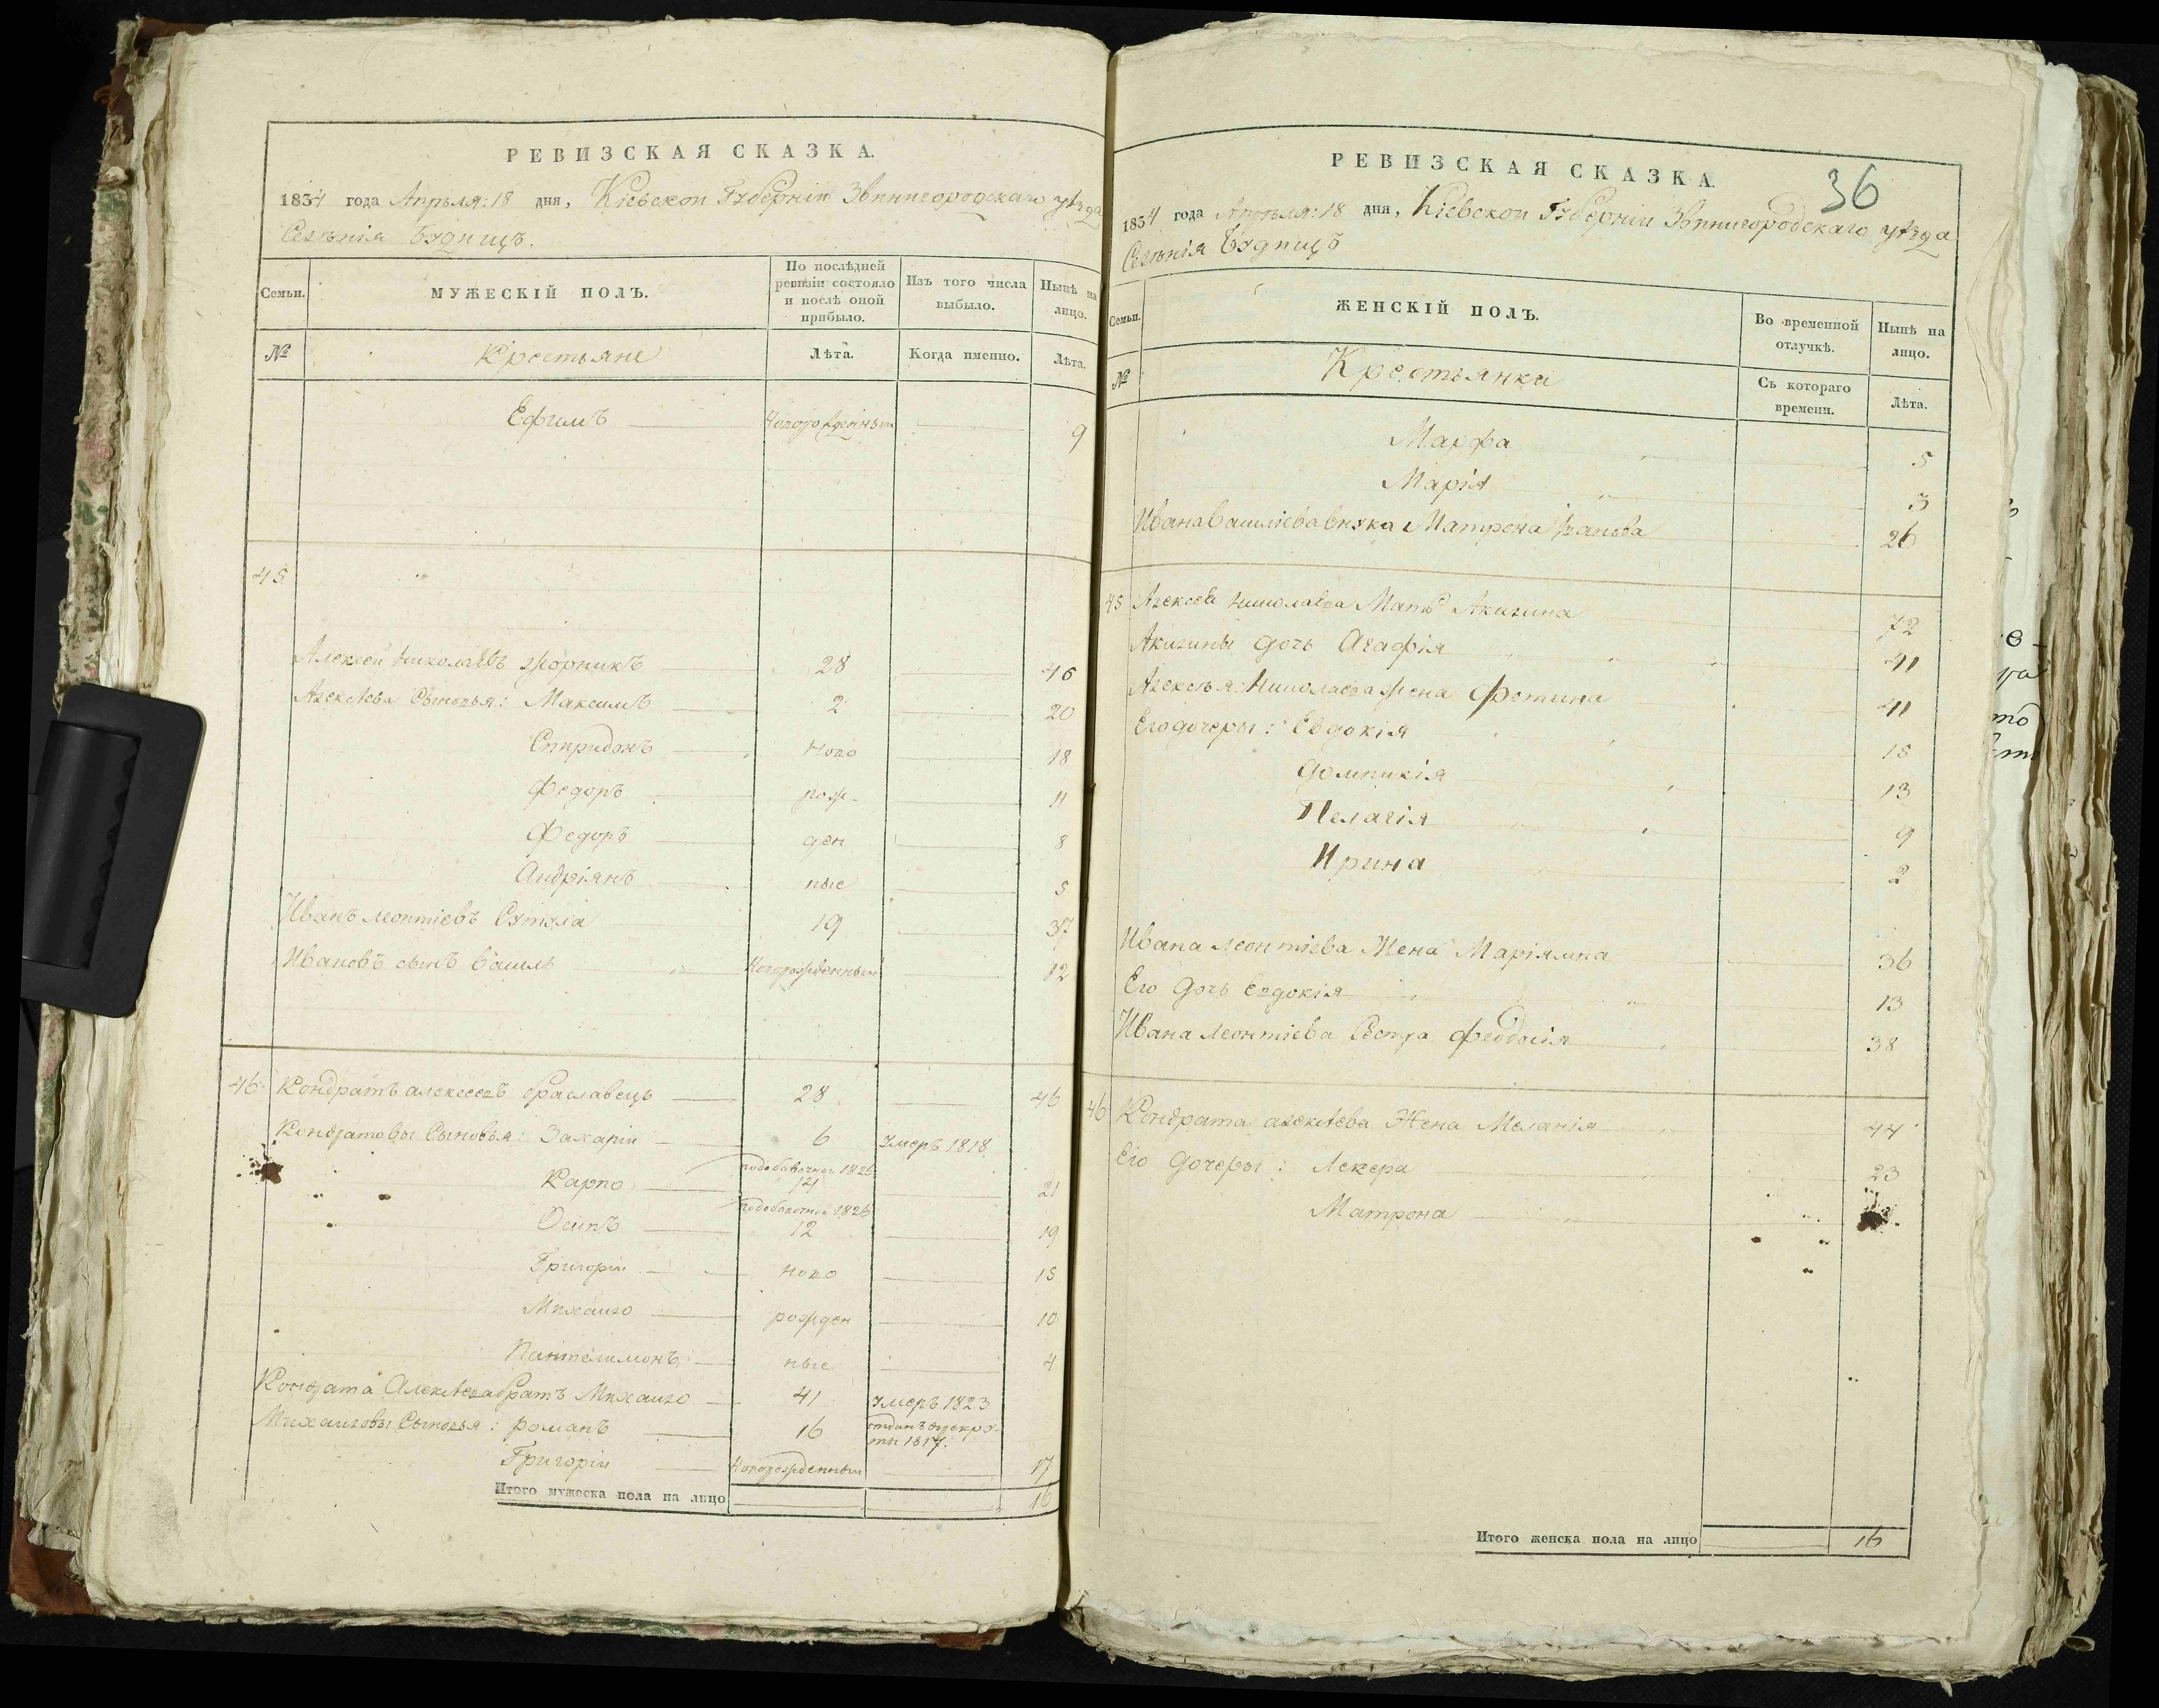 РЕВИЗСКАЯ СКАЗКА.
1834 года Апрѣля: 18 дня, Кіевской Губерніи Звинигородскаго уѣзда
Селенія Будищъ.
Семьи.
МУЖЕСКІЙ ПОЛЪ.
По послѣдней ревизіи состояло и послѣ оной прибыло.
Изъ того числа выбыло.
Нынѣ на лицо.
№
Крестьяне
Лѣта.
Когда именно.
Лѣта.
Ефимъ Новорожденный 9
45
Алексей Николаевъ 28 46
Алексѣева Сыновья: Максимъ 2 20
Спиридонъ ново 18
Федоръ рож- 11
Федоръ ден 8
Андріянъ ные 5
Иванъ Леонтіевъ Сутула 19 37
Ивановъ сынъ Василь Новорожденный 12
46 Кондратъ алексеевъ Браславець 28 46
Кондратовы Сыновья: Захарій 6 Умеръ 1818
Карпо 21
Осипъ 12 19
Григорій ново 15
Михайло рожден 10
Пантелимонъ ные 4
Кондрата Алексѣева братъ Михайло 41 Умеръ 1823
Михайловы Сыновья: Романъ 16 отданъ врекру-
ты 1817.
Григорій Новорожденный 17
Итого мужеска пола на лицо 16
РЕВИЗСКАЯ СКАЗКА.
36
1834 года Апрѣля: 18 дня, Кіевской Губерніи Звинигородскаго уѣзда
Селенія Будищъ
Семьи.
ЖЕНСКІЙ ПОЛЪ.
Во временной отлучкѣ.
Нынѣ на лицо.
№
Крестьянки
Съ котораго времени.
Лѣта.
Марфа 5
Марія 3
Ивана Василіева внука Матрона Иванова 26
45 Алексея Николаева Мать Акилина 72
Акилины дочь Агафія 41
Алексѣя Николаева Жена Фотина 41
Его дочеры: Евдокія 15
Домникія 13
Пелагія 9
Ирина 2
Ивана Леонтіева Жена Маріямна 36
Его дочь Евдокія 13
Ивана Леонтіева Сестра Феодосія 38
46 Кондрата алексѣева Жена Меланія 44
Его Дочеры: Лекера 23
Матрона
Итого женска пола на лицо 16